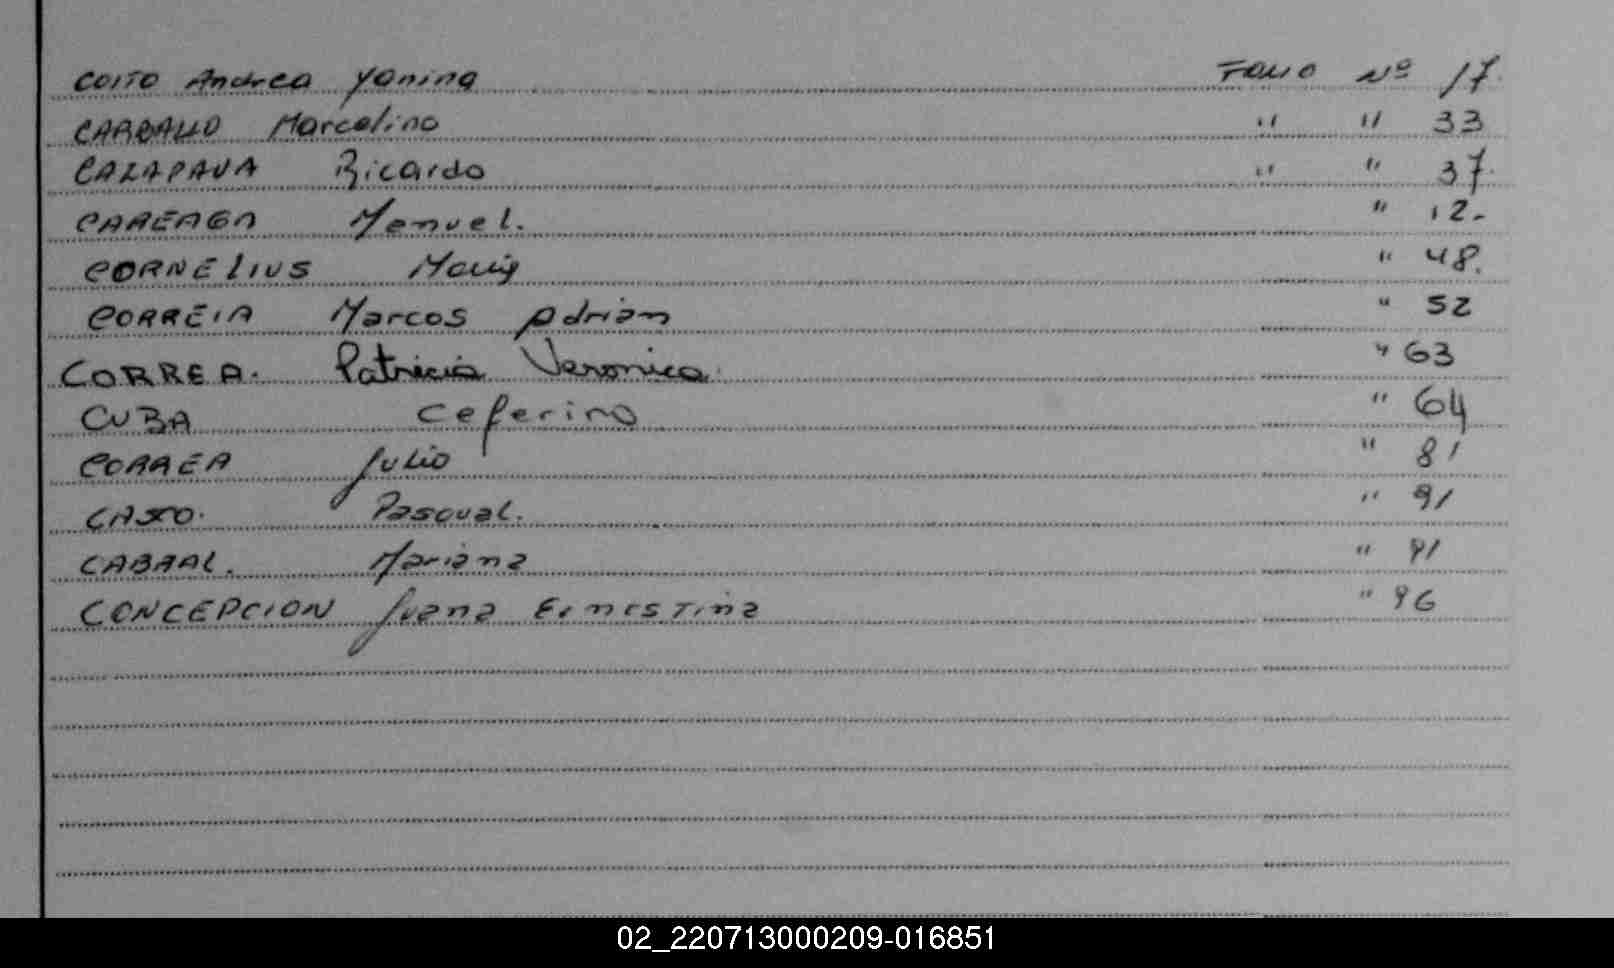 COITO Andrea Yanina Folio Nº 17.
CARBALLO Marcelino " " 33
CAZAPAVA Ricardo " " 37.
CAREAGA Manuel. " 12.
CORNELIUS " 48.
CORREIA Marcos Adrian " 52
CORREA. Patricia Veronica. " 63
CUBA Ceferino " 64
CORREA Julio " 81
Pascual. " 91
CABRAL. Mariana " 91
CONCEPCION Juana Ernestina " 96
02_220713000209-016851